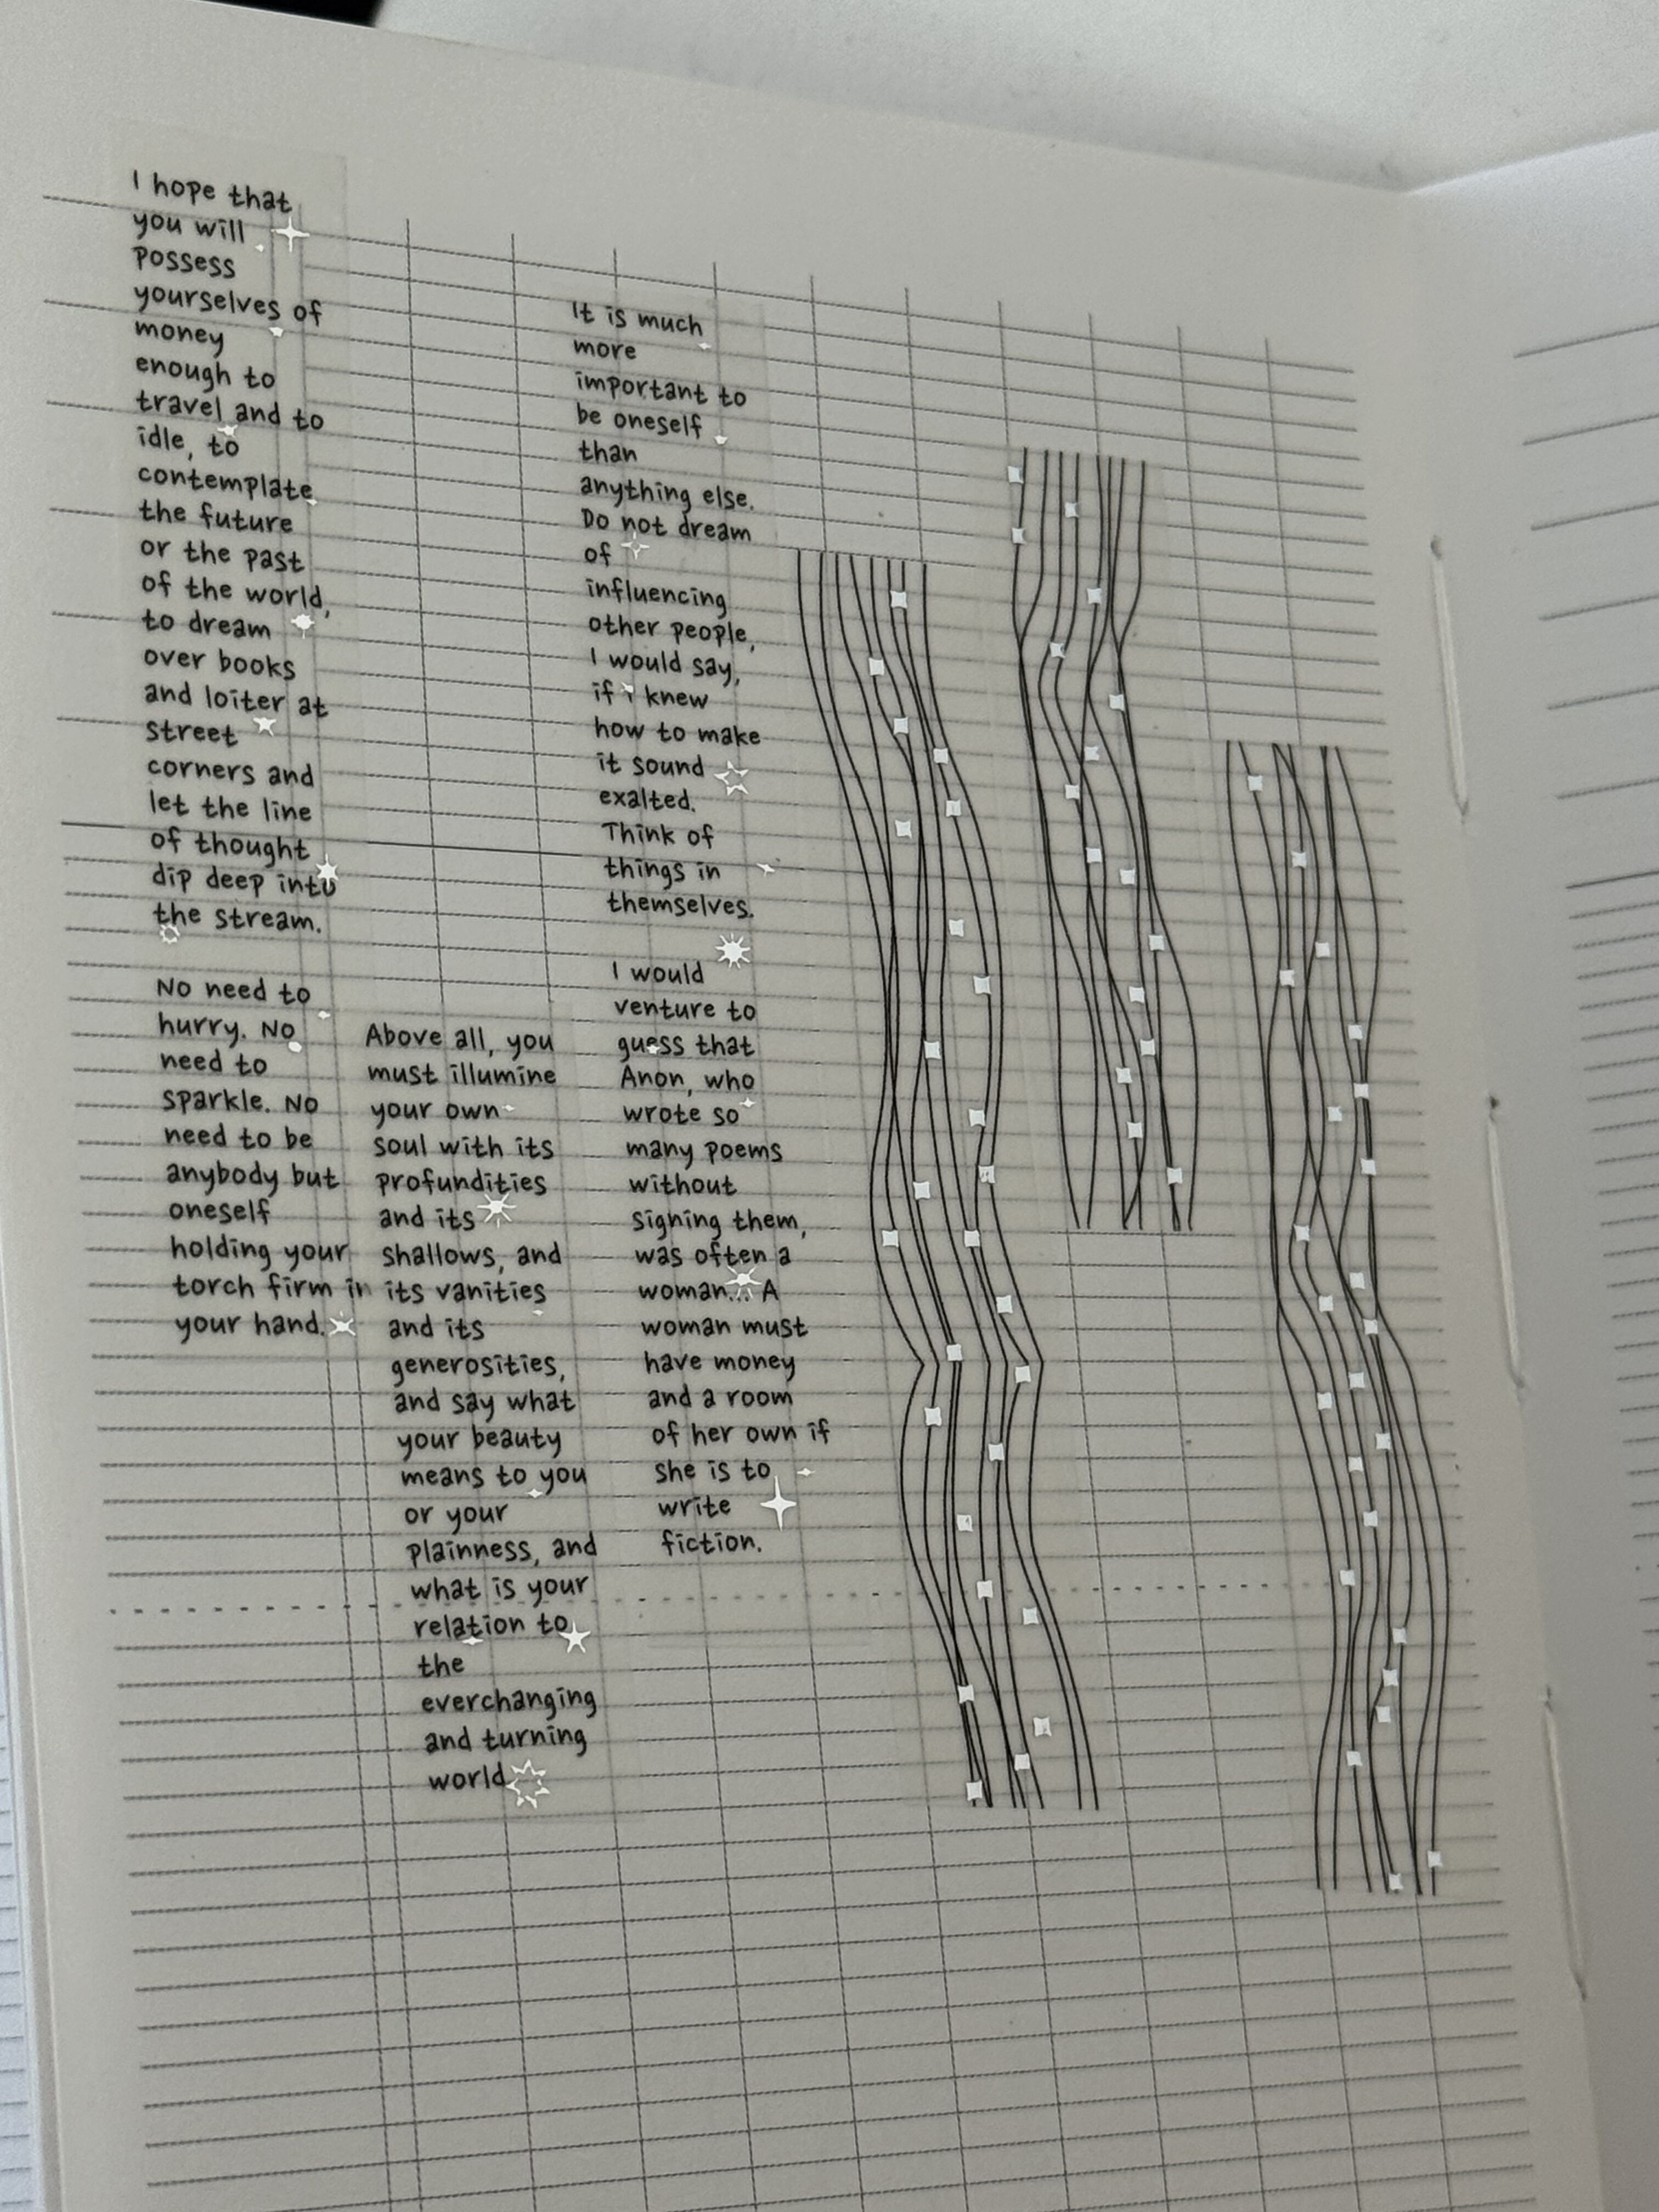 I hope that
you will
possess
yourselves of
money
enough to
travel and to
idle, to
contemplate
the future
or the past
of the world,
to dream
over books
and loiter at
street
corners and
let the line
of thought
dip deep into
the stream.
No need to
hurry. No
need to
sparkle. No
need to be
anybody but
oneself
holding your
torch firm in
your hand.
Above all, you
must illumine
your own
soul with its
profundities
and its
shallows, and
its vanities
and its
generosities,
and say what
your beauty
means to you
or your
plainness, and
what is your
relation to
the
everchanging
and turning
world
It is much
more
important to
be oneself
than
anything else.
Do not dream
of
influencing
other people,
I would say,
if i knew
how to make
it sound
exalted.
Think of
things in
themselves.
I would
venture to
guess that
Anon, who
wrote so
many poems
without
signing them,
was often a
woman... A
woman must
have money
and a room
of her own if
she is to
write
fiction.